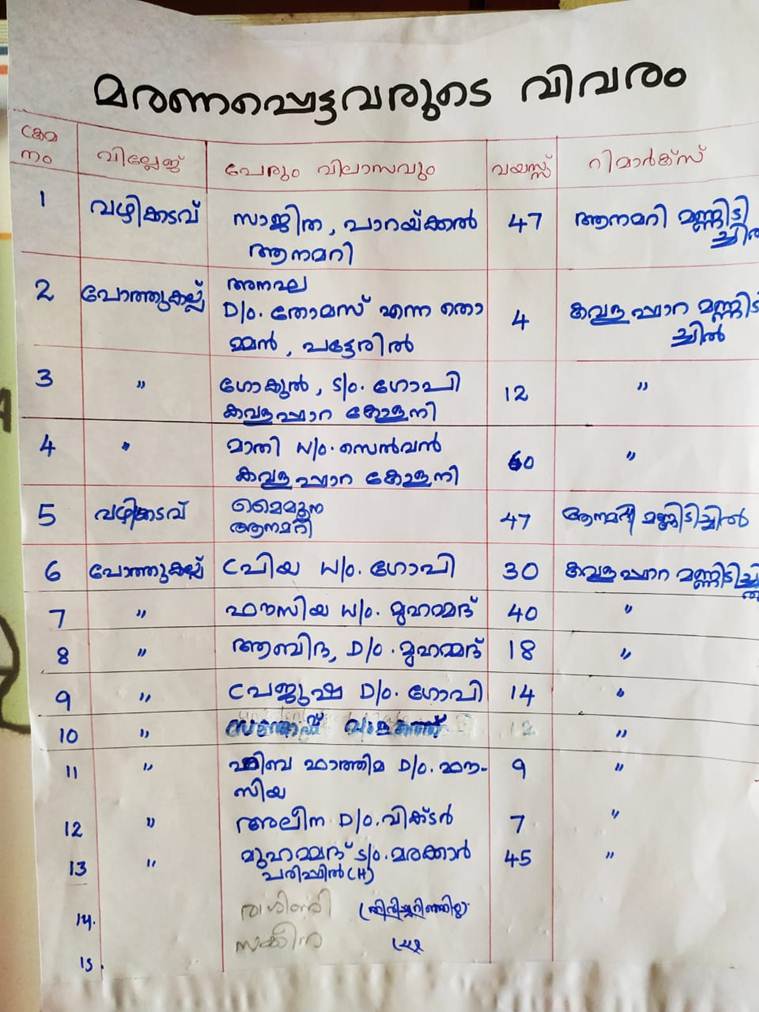 മരണപ്പെട്ടവരുടെ വിവരം
ക്രമ നം വില്ലേജ് പേരും വിലാസവും വയസ്സ് റിമാർക്സ്
1 വഴിക്കടവ് സാജിത, പാറയ്ക്കൽ 47 ആനമറി മണ്ണിടി
ആനമറി ച്ചിൽ
2 പോത്തുകല്ല് അനഘ
D/o. തോമസ് എന്ന തൊ 4 കവളപ്പാറ മണ്ണിടി
മ്മൻ, പട്ടേരിൽ ച്ചിൽ
3 " ഗോകുൽ, S/o. ഗോപി 12 "
കവളപ്പാറ കോളനി
4 " മാതി W/o. സെൽവൻ 60 "
കവളപ്പാറ കോളനി
5 വഴിക്കടവ് മൈമൂന 47 ആനമറി മണ്ണിടിച്ചിൽ
ആനമറി
6 പോത്തുകല്ല് പ്രിയ W/o. ഗോപി 30 കവളപ്പാറ മണ്ണിടിച്ചി
7 " ഫൗസിയ W/o. മുഹമ്മദ് 40 "
8 " ആബിദ, D/o. മുഹമ്മദ് 18 "
9 " പ്രജുഷ D/o. ഗോപി 14 "
10 " "
11 " ഫിബ ഫാത്തിമ D/o. ഫൗ- 9 "
സിയ
12 " അലീന D/o. വിക്ടർ 7 "
13 " മുഹമ്മദ് S/o. മരക്കാർ 45 "
(H)
14.
15. സക്കീന